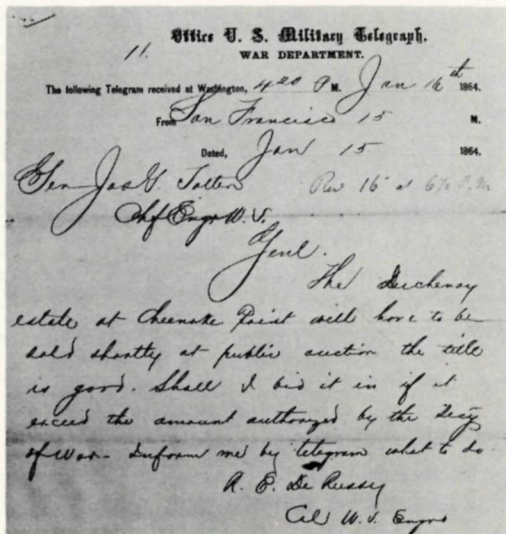 Office U. S. Military Telegraph.
11.
WAR DEPARTMENT.
The following Telegram received at Washington, 4 20 P M. Jan 16th 1864.
From San Francisco 15 M.
Dated, Jan 15 1864.
Gen Jos G. Totten
Rec 16 at 6½ P.M
Chf Engr U.S.
Genl.
The Duchenay
estate at Cheenoke Point will have to be
sold shortly at public auction the title
is good. Shall I bid it in if it
exceed the amount authorized by the Secty
of War - Inform me by telegram what to do
R. E. De Russy
Col U.S. Engrs